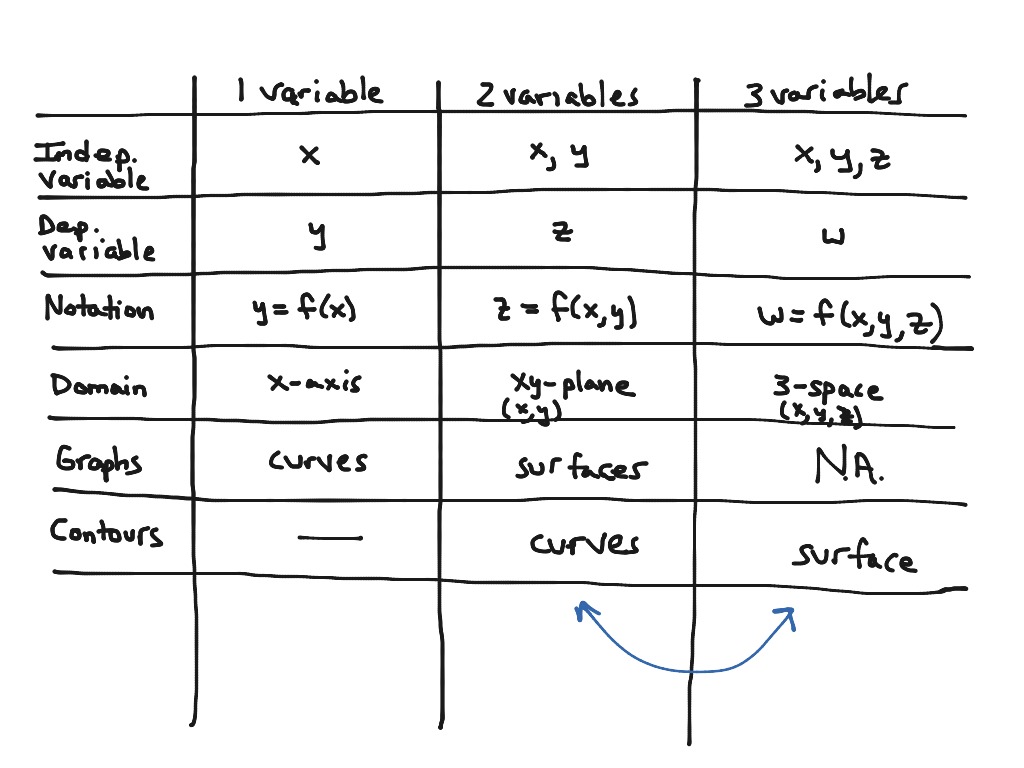 1 variable 2 variables 3 variables
Indep. variable x x, y x, y, z
Dep. variable y z w
Notation y = f(x) z = f(x,y) w = f(x,y,z)
Domain x-axis xy-plane 3-space
(x,y) (x,y,z)
Graphs curves surfaces N.A.
Contours — curves surface